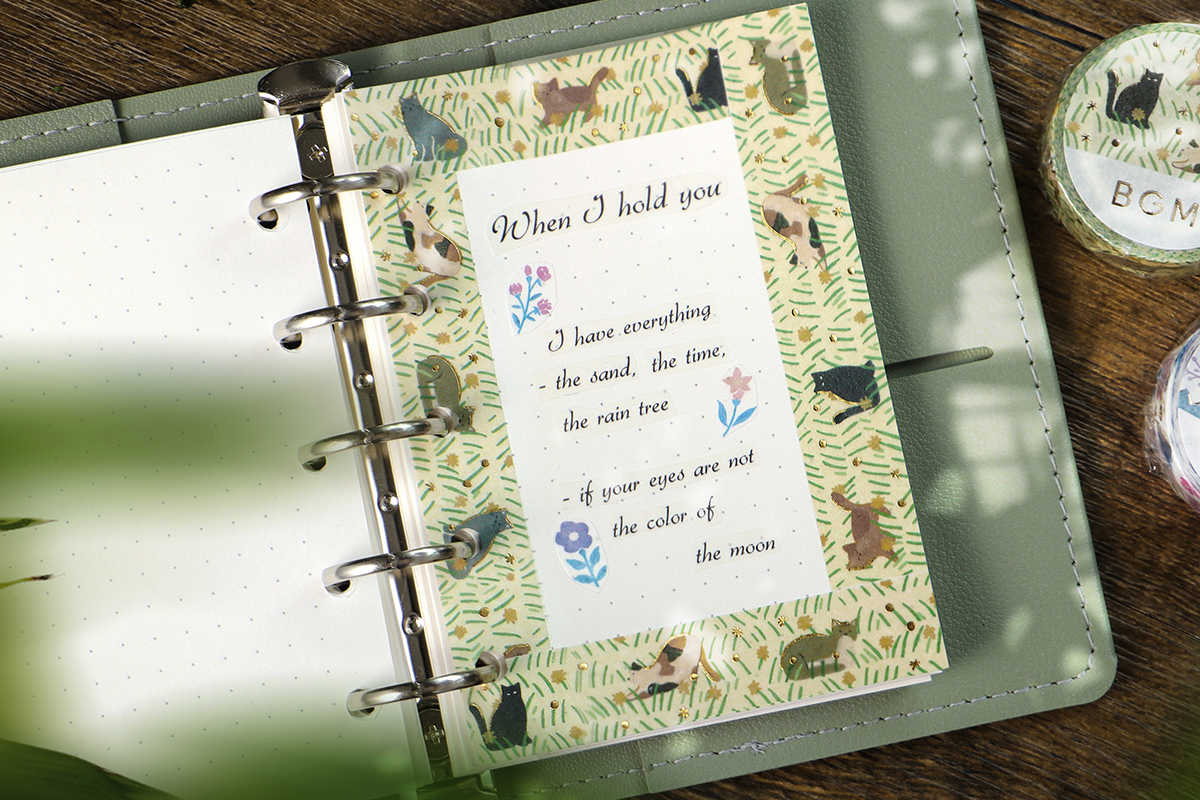 When I hold you
I have everything
- the sand, the time,
the rain tree
- if your eyes are not
the color of
the moon
BGM